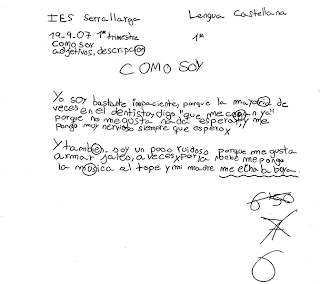 IES Serrallarga Lengua Castellana
19-9-07 1º trimestre 1º
Como soy
adjetivos, descripción
COMO SOY
Yo soy bastante impaciente, porque la mayoria de
veces en el dentista, digo "que me cojan ya"
porque no me gusta nada esperar, y me
pongo muy nervioso siempre que espero.
Y tambien soy un poco ruidoso porque me gusta
armar jaleo, a veces, por la noche me pongo
la musica al tope y mi madre me echa la bronca.
6
7
6